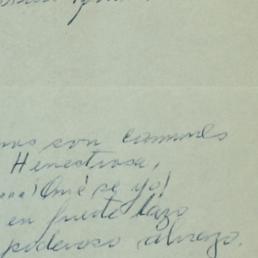 son comunes
Henestrosa,
¡Qué se yo!
en fuerte lazo
poderoso abrazo.